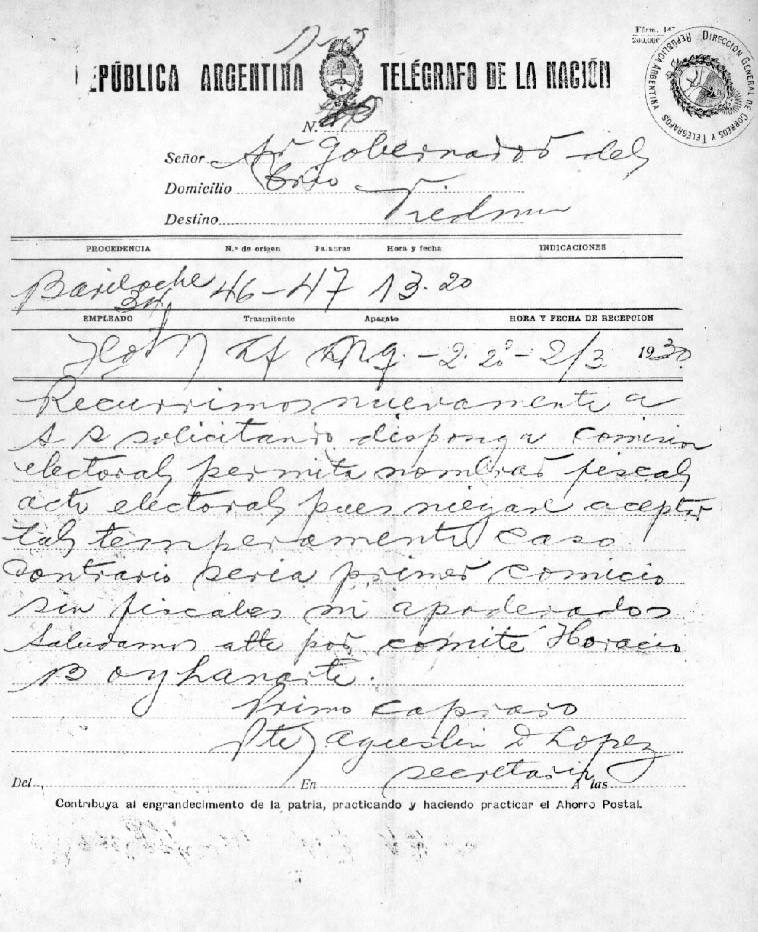 REPÚBLICA ARGENTINA TELÉGRAFO DE LA NACIÓN
DIRECCIÓN GENERAL DE CORREOS Y TELÉGRAFOS REPÚBLICA ARGENTINA
N.
Señor Sr Gobernador del
Domicilio
Destino Viedma
PROCEDENCIA N.º de origen Palabras Hora y fecha INDICACIONES
Bariloche 46-47 13.20
EMPLEADO Trasmitente Aparato HORA Y FECHA DE RECEPCION
2/3 1930
Recurrimos nuevamente a
S S solicitando disponga comision
electoral permita nombrar fiscal
acto electoral pues niegase aceptar
tal temperamento caso
contrario seria primer comicio
sin fiscales ni apoderados
Saludamos atte por comité Horacio
B Oyhanarte.
Primo Capraro
Pte Agustin D Lopez
secretario
Del En A las
Contribuya al engrandecimento de la patria, practicando y haciendo practicar el Ahorro Postal.